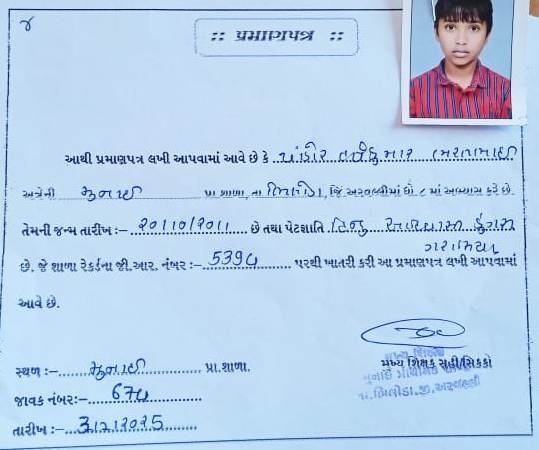 ૪
:: પ્રમાણપત્ર ::
આથી પ્રમાણપત્ર લખી આપવામાં આવે છે કે
અત્રેની મુનાઈ પ્રા.શાળા, તા. ભિલોડા, જિ.અરવલ્લીમાં ધો ૮ માં અભ્યાસ કરે છે.
તેમની જન્મ તારીખ :- ૨૦/૧૦/૨૦૧૧ છે તથા પેટાજાતિ હિન્દુ ડુંગરી
ગરાસિયા
છે. જે શાળા રેકર્ડના જી.આર. નંબર :- પરથી ખાતરી કરી આ પ્રમાણપત્ર લખી આપવામાં
આવે છે.
મુખ્ય શિક્ષક સહી/સિક્કો
મુનાઈ પ્રાથમિક
તા.ભિલોડા.જી.અરવલ્લી
સ્થળ :- મુનાઈ પ્રા.શાળા.
જાવક નંબર:-
તારીખ :- 3/2/2025